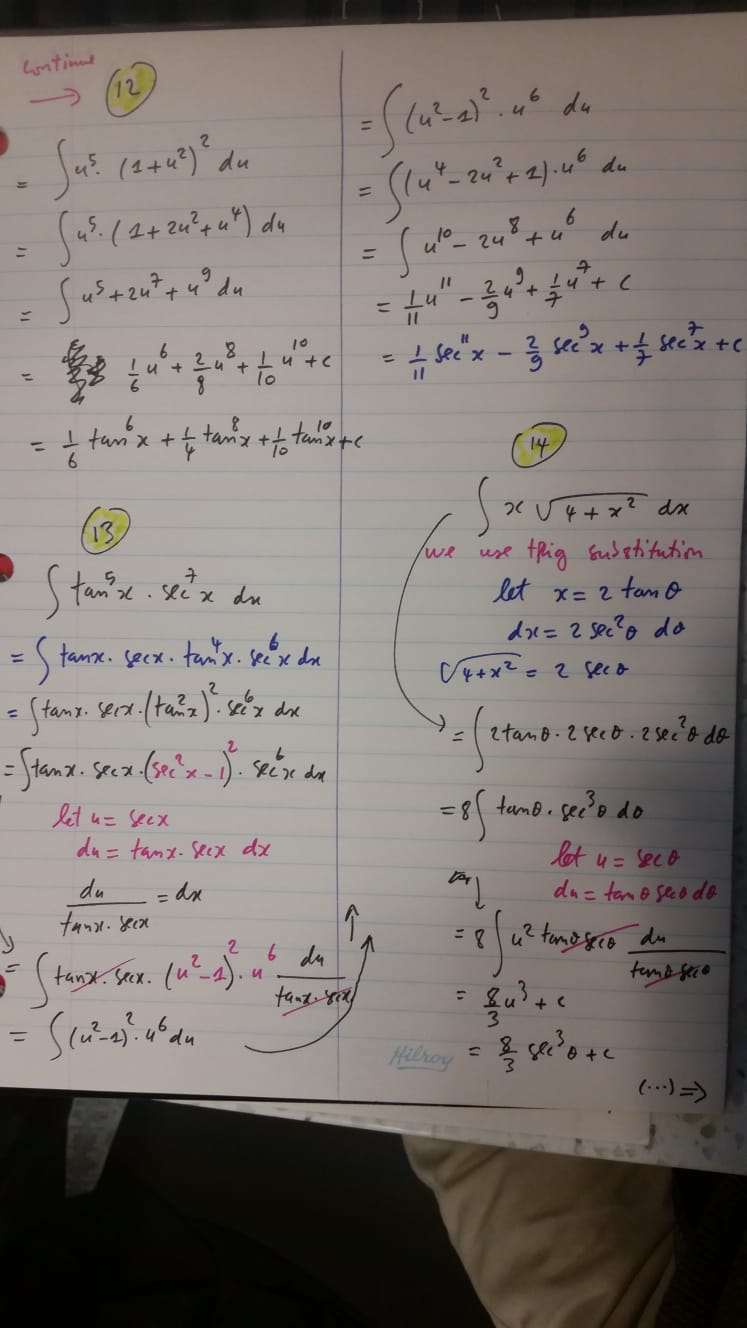 continue
→ 12
= ∫u⁵· (1+u²)² du
= ∫u⁵·(1+2u²+u⁴) du
= ∫u⁵+2u⁷+u⁹ du
= 1/6 u⁶ + 2/8 u⁸ + 1/10 u¹⁰ + c
= 1/6 tan⁶x + 1/4 tan⁸x + 1/10 tan¹⁰x + c
13
∫ tan⁵x · sec⁷x dx
= ∫ tanx · secx · tan⁴x · sec⁶x dx
= ∫tanx · secx · (tan²x)² · sec⁶x dx
= ∫tanx · secx · (sec²x − 1)² · sec⁶x dx
let u = secx
du = tanx · secx dx
du/(tanx · secx) = dx
= ∫ tanx · secx · (u² − 1)² · u⁶ du/(tanx · secx)
= ∫ (u²−1)² · u⁶ du
= ∫(u²−1)² · u⁶ du
= ∫(u⁴ − 2u² + 1) · u⁶ du
= ∫ u¹⁰ − 2u⁸ + u⁶ du
= 1/11 u¹¹ − 2/9 u⁹ + 1/7 u⁷ + c
= 1/11 sec¹¹x − 2/9 sec⁹x + 1/7 sec⁷x + c
14
∫ x √(4 + x²) dx
we use trig substitution
let x = 2 tanθ
dx = 2 sec²θ dθ
√(4+x²) = 2 secθ
= ∫ 2tanθ · 2secθ · 2sec²θ dθ
= 8∫ tanθ · sec³θ dθ
let u = secθ
du = tanθ secθ dθ
= 8∫ u² tanθ secθ du/(tanθ secθ)
= 8/3 u³ + c
= 8/3 sec³θ + c
(...) ⇒
Hilroy